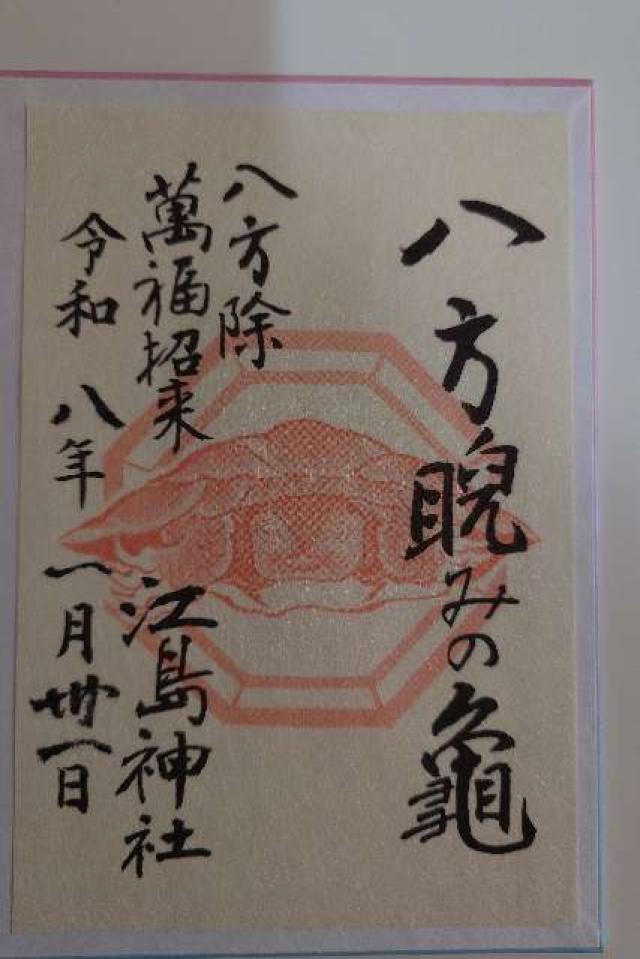 八方睨みの龜
八方除
萬福招来
江島神社
令和八年一月卅一日